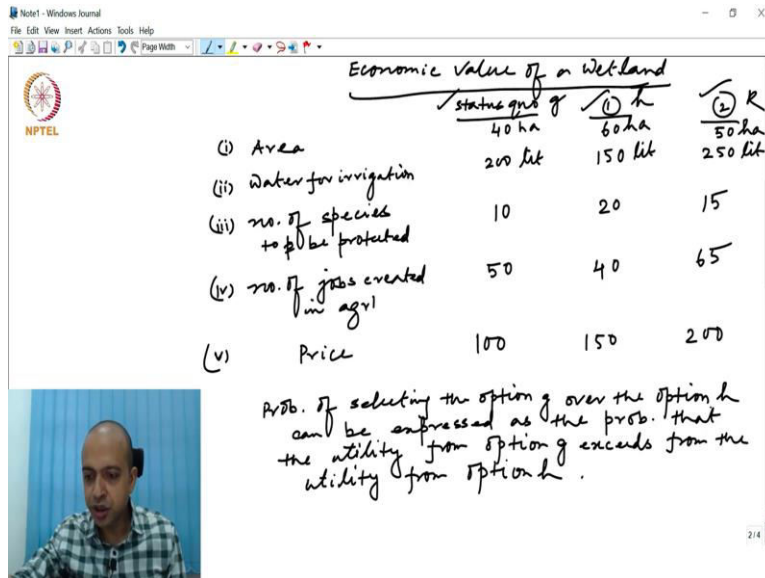 Note1 - Windows Journal
File Edit View Insert Actions Tools Help
Page Width
NPTEL
Economic value of a Wetland
status quo g ① h ② k
40 ha 60 ha 50 ha
(i) Area
(ii) Water for irrigation 200 lit 150 lit 250 lit
(iii) no. of species 10 20 15
to be protected
(iv) no. of jobs created 50 40 65
in agrl
(v) Price 100 150 200
Prob. of selecting the option g over the option h
can be expressed as the prob. that
the utility from option g exceeds from the
utility from option h.
2/4